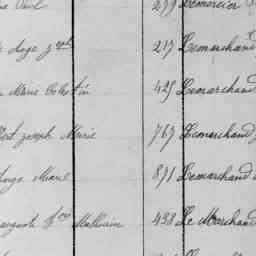 Paul 299 Lemercier
Ange Joseph 217 Lemarchand
Marie Celestin 425 Lemarchand
Joseph Marie 767 Lemarchand
Ange Marie 891 Lemarchand
fois Mathurin 438 Le Marchand